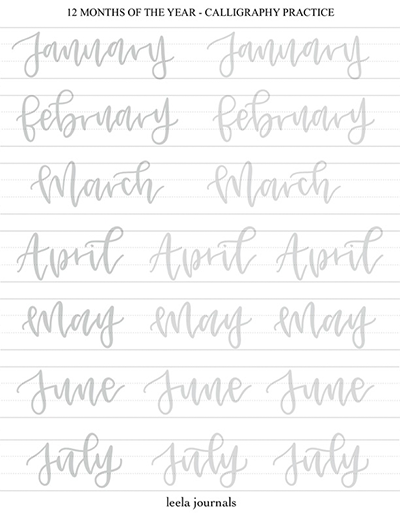 12 MONTHS OF THE YEAR - CALLIGRAPHY PRACTICE
January January
february february
March March
April April April
May May May
June June June
July July July
leela journals